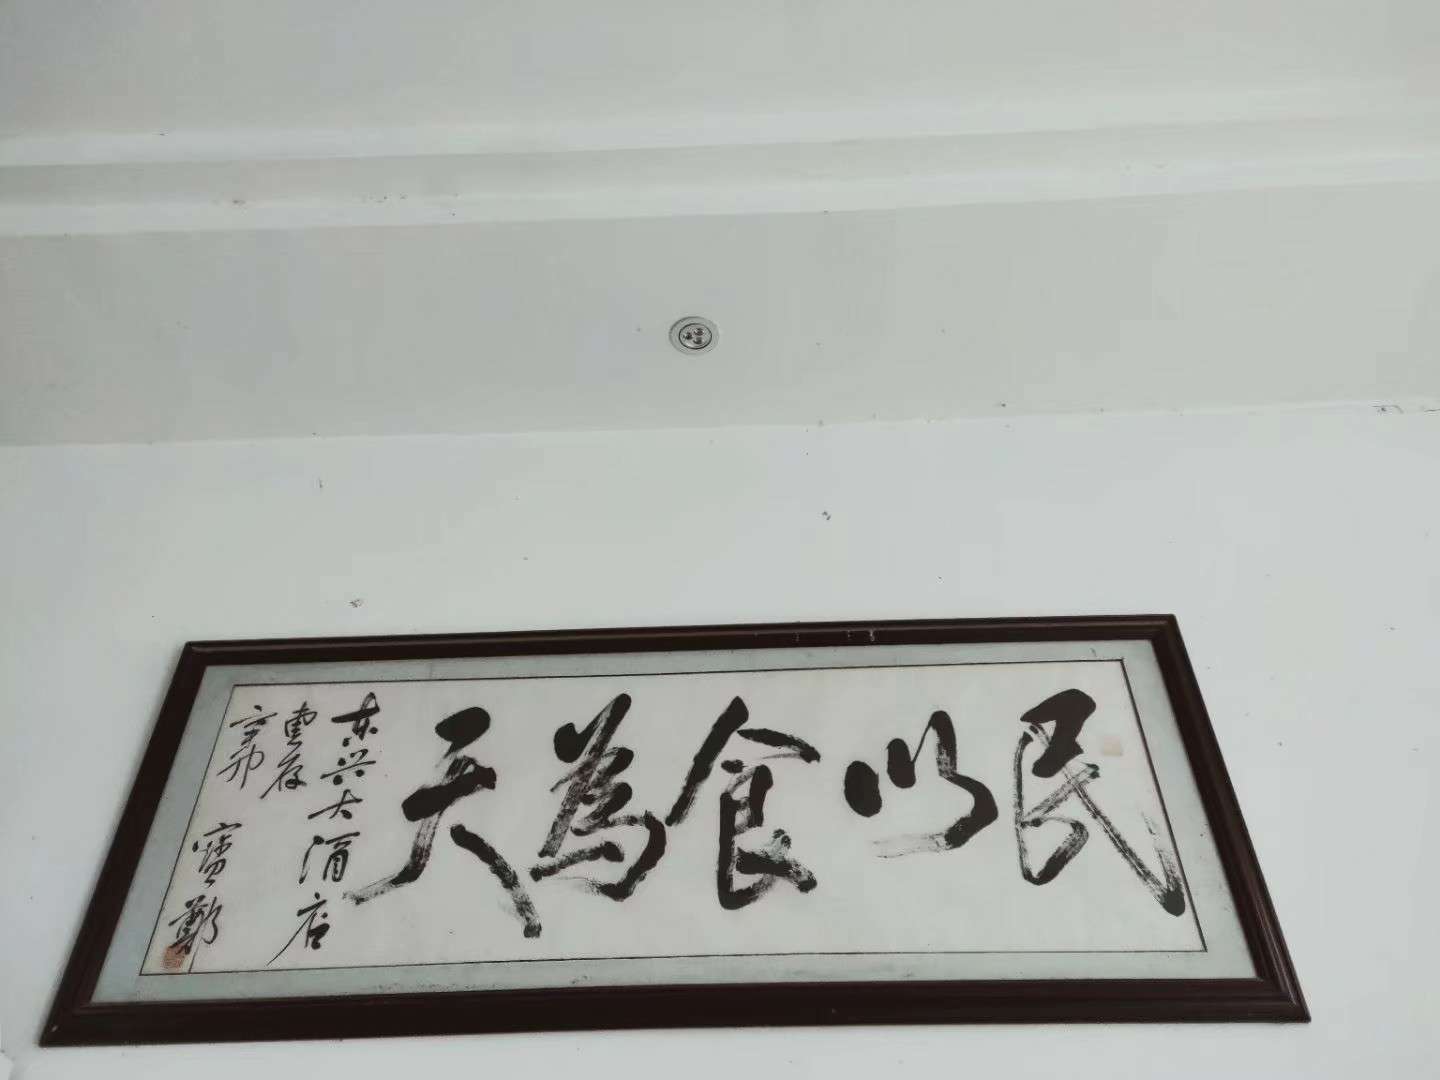 民以食為天
东兴大酒店
惠存
辛卯
寶鄭